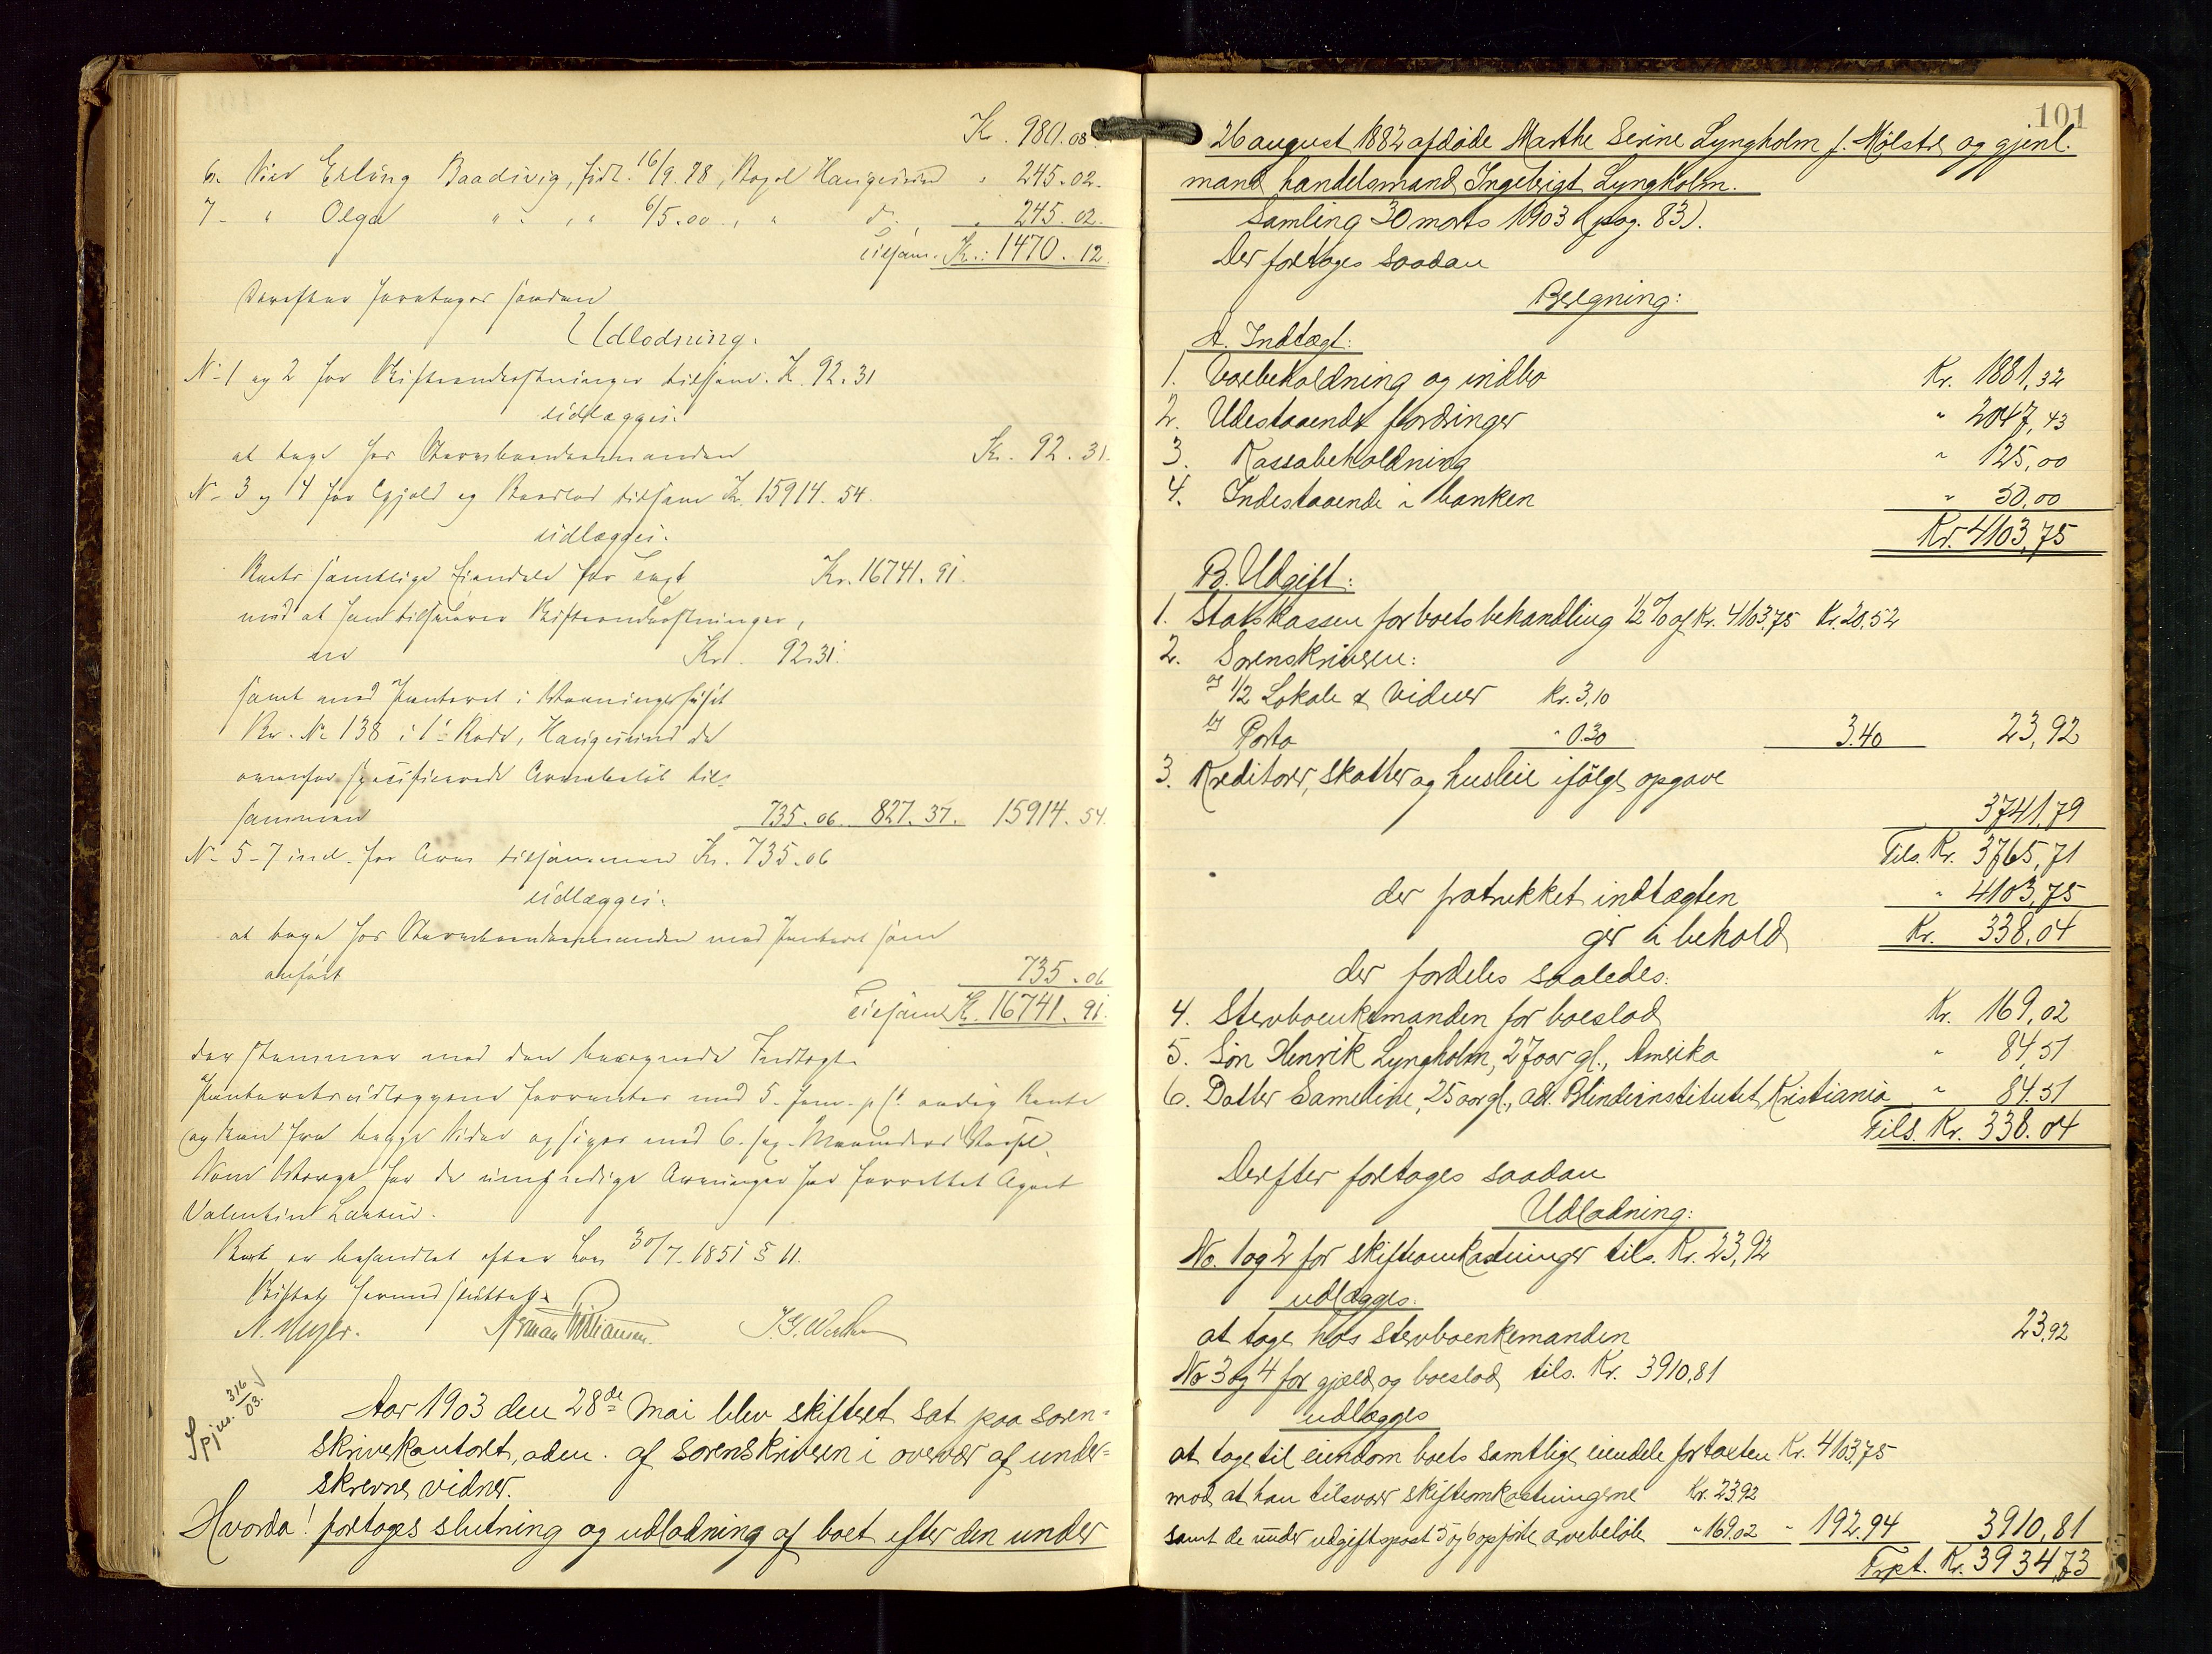 Kr. 980.08.
6. Erling Baadsvig, født 16/9.98, Haugesund " 245.02.
7 - " Olga " " " 6/5.00, " d. " 245.02.
tilsam. Kr.: 1470.12.
Derefter foretages saadan
Udlodning.
No 1 og 2 for Skifteomkostninger tilsam. K. 92.31
udlægges:
at tage hos Stervboenkemanden Kr. 92.31.
No 3 og 4 for Gjæld og Boeslod tilsam Kr. 15914.54.
udlægges:
Boets samtlige Eiendele for Taxt Kr. 16741.91.
mod at han tilsvarer Skifteomkostninger,
Kr. 92.31.
samt mod Panteret i Vaaningshuset
Br. No 138 i 1ste Rode, Haugesund de
ovenfor specificerede Arvebeløb til-
sammen 735.06. 827.37. 15914.54.
No 5-7 incl. for Arv tilsammen Kr. 735.06
udlægges:
at tage hos Stervboenkemanden med Panteret som
anført 735.06
Tilsam. K. 16741.91.
der stemmer med den beregnede Indtægt.
Panteretsudlæggene forrentes med 5 - fem - p Ct. aarlig Rente
og kan fra begge Sider opsiges med 6 - sex - Maaneders Varsel.
Som Værge for de umyndige Arvinger har forrettet Agent
Valentin Larsen.
Boet er behandlet efter Lov 30/7-1851 § 11.
Skiftet hermed sluttet.
N. Meyer.
Spjm. 3/6 03.
Aar 1903 den 28de mai blev skifteret sat paa soren-
skriverkontoret, adm. af sorenskriveren i overvær af under-
skrevne vidner.
Hvorda! foretages slutning og udlodning af boet efter den under
101
26 august 1882 afdøde Marthe Serine Lyngholm f. Mølstre og gjenl.
mand handelsmand Ingebrigt Lyngholm.
Samling 30 marts 1903 (pag. 83).
Der foretages saadan
Beregning:
A. Indtægt:
1. Varebeholdning og indbo Kr. 1881,32
2. Udestaaende fordringer " 2047,43
3. Kassabeholdning " 125,00
4. Indestaaende i banken " 50,00
Kr. 4103,75
B. Udgift:
1. Statskassen for boets behandling 1/2 % af Kr. 4103,75 Kr. 20,52
2. Sorenskriveren:
a) 1/2 Lokale & vidner Kr. 3,10
b) Porto " 0.30 3.40 23,92
3. Kreditorer, skatter og husleie ifølge opgave
3741,79
Tils. Kr. 3765,71
der fratrukket indtægten " 4103,75
gir i behold Kr. 338,04
der fordeles saaledes:
4. Stervboenkemanden for boeslod Kr. 169,02
5. Søn Henrik Lyngholm, 27 aar gl., Amerika " 84,51
6. Datter Sameline, 25 aar gl., adr. Blindeinstitutet, Kristiania " 84.51
Tils. Kr. 338.04
Derefter foretages saadan
Udlodning:
No. 1 og 2 for skifteomkostninger tils. Kr. 23,92
udlægges:
at tage hos stervboenkemanden 23,92
No 3 og 4 for gjæld og boeslod tils. Kr. 3910,81
udlægges
at tage til eiendom boets samtlige eiendele for taxten Kr. 4103,75
mod at han tilsvarer skifteomkostningerne Kr. 23,92
samt de under udgiftspost 5 og 6 opførte arvebeløb " 169.02 " 192.94 3910,81
Trpt. Kr. 3934,73